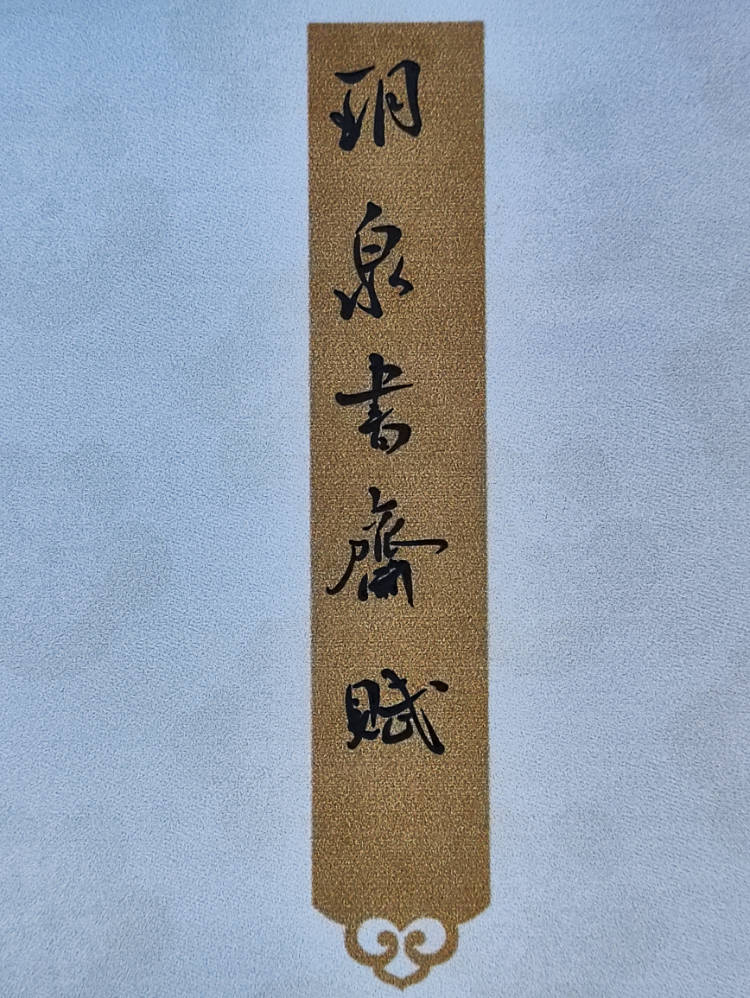 玥泉書齋賦